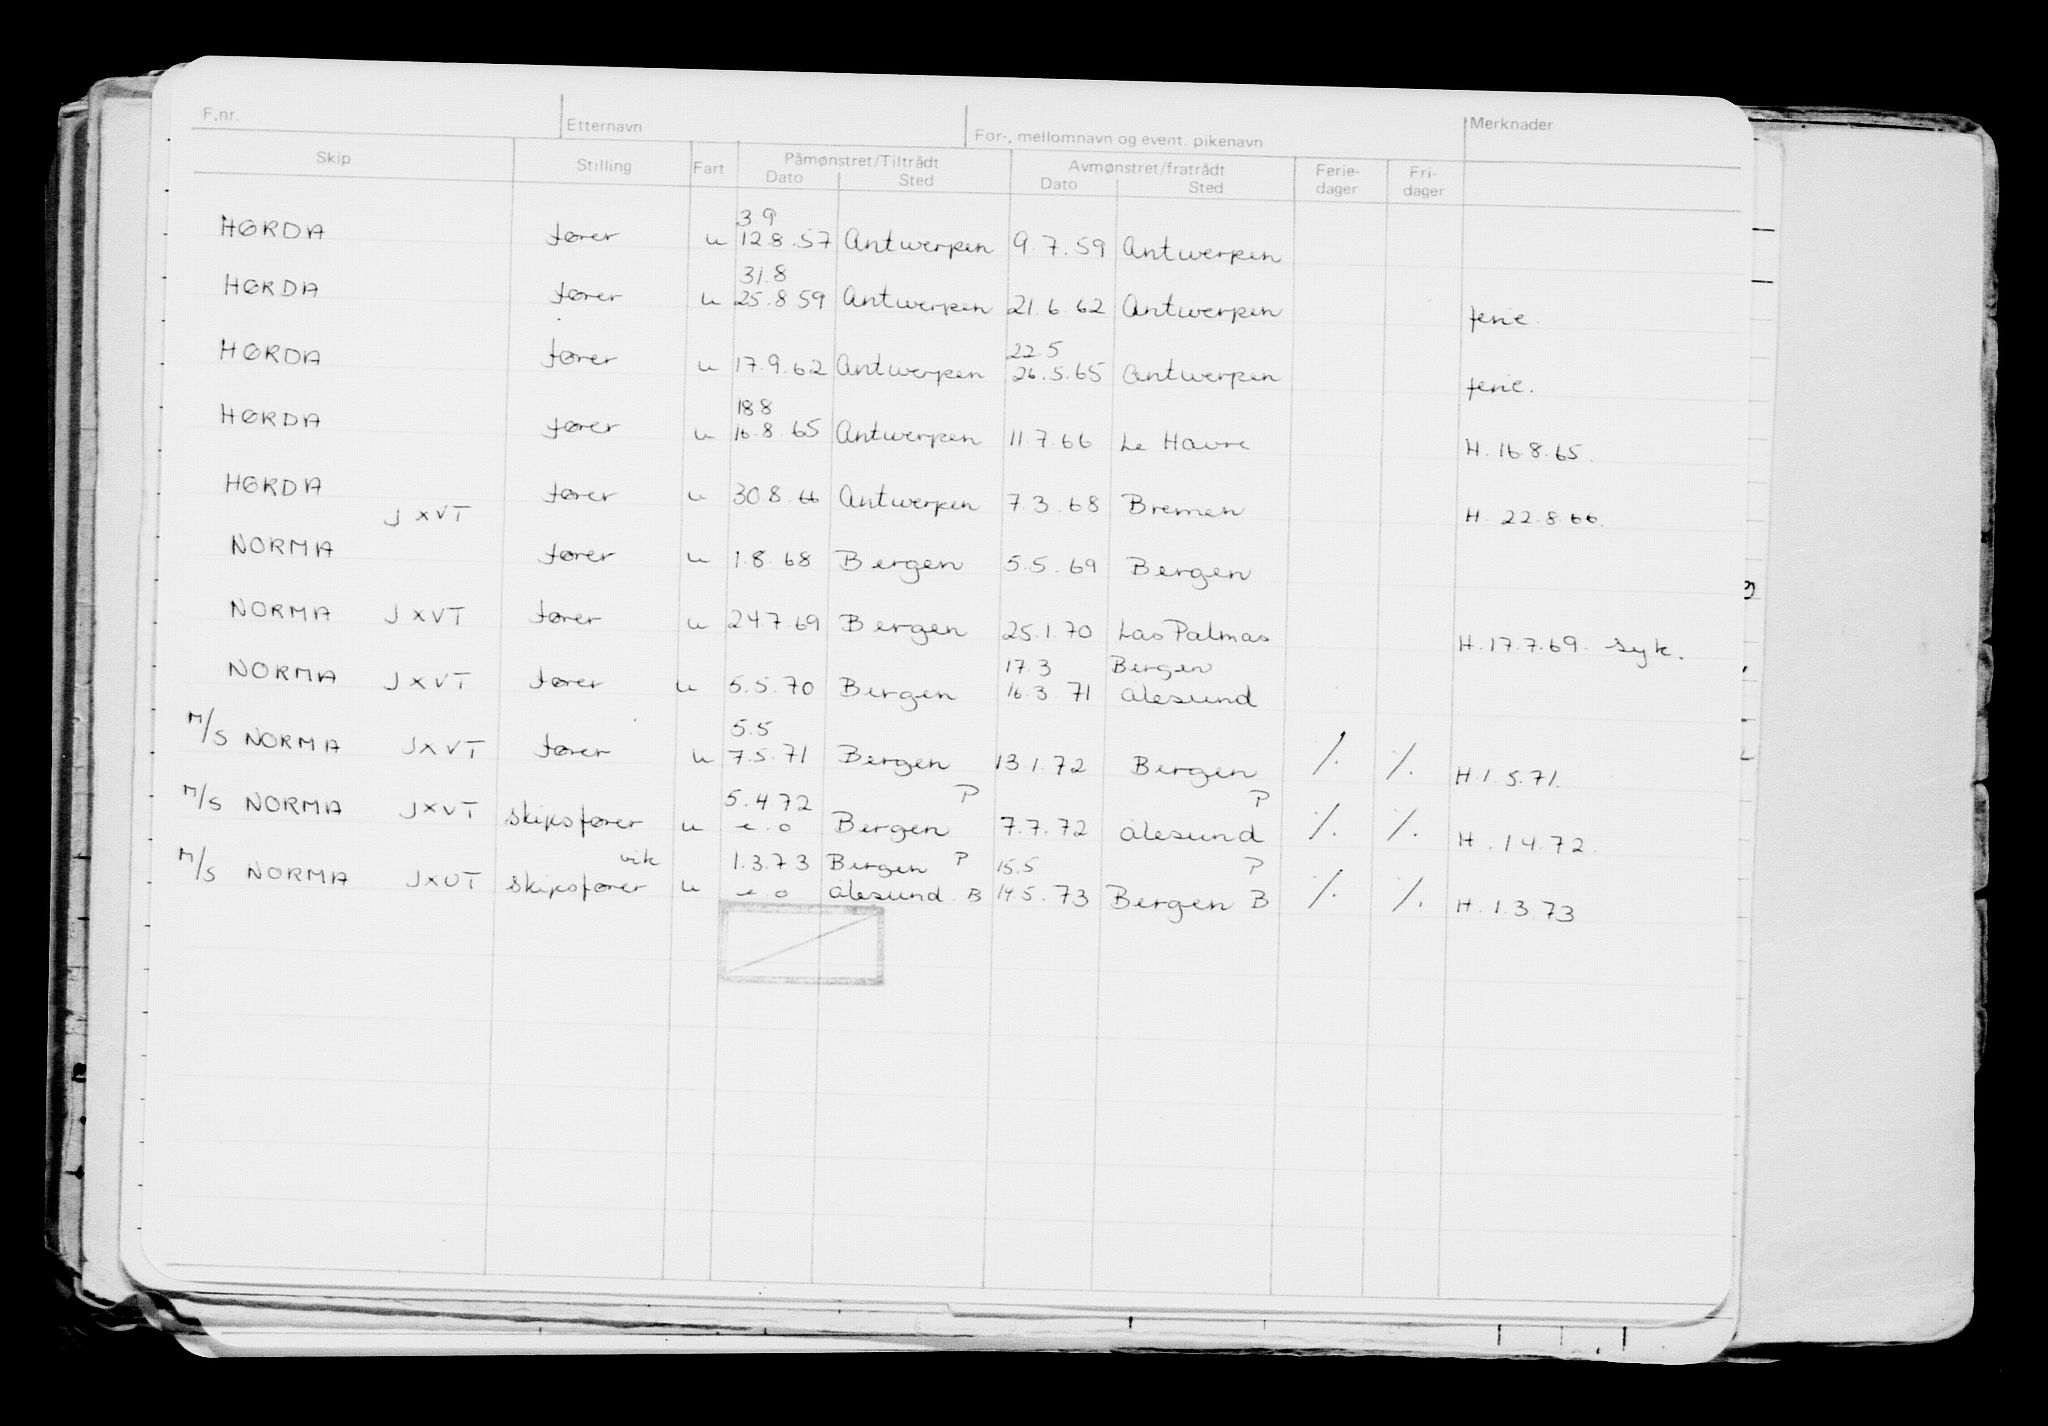 F.nr. Etternavn For-, mellomnavn og event. pikenavn Merknader
Skip Stilling Fart Påmønstret/Tiltrådt Avmønstret/fratrådt Ferie-dager Fri-dager
Dato Sted Dato Sted
3.9
HØRDA fører u 12.8.57 Antwerpen 9.7.59 Antwerpen
31.8
HØRDA fører u 25.8 59 Antwerpen 21.6.62 Antwerpen ferie.
22.5
HØRDA fører u 17.9.62 Antwerpen 26.5.65 Antwerpen ferie.
18 8
HØRDA fører u 16.8.65 Antwerpen 11.7.66 Le Havre H. 16.8.65.
HØRDA fører u 30.8.66 Antwerpen 7.3.68 Bremen H. 22.8.66.
JXVT
NORMA fører u 1.8.68 Bergen 5.5.69 Bergen
NORMA JXVT fører u 24.7.69 Bergen 25.1.70 Las Palmas H.17.7.69. syk.
17.3 Bergen
NORMA JXVT fører u 5.5.70 Bergen 16.3.71 Ålesund
5.5
M/S NORMA JXVT fører u 7.5.71 Bergen 13.1.72 Bergen ./. ./. H.1.5.71.
5.4.72 P P
M/S NORMA JXVT Skipsfører u e.o Bergen 7.7.72 Ålesund ./. ./. H.1.4.72.
vik 1.3.73 Bergen P 15.5 P
M/S NORMA JXUT Skipsfører u e.o Ålesund. B 14.5.73 Bergen B ./. ./. H.1.3.73